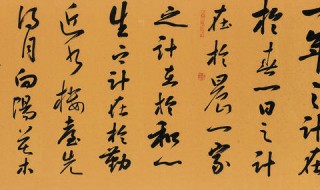 一年之计在
於春一日之计
在於晨一家
之计在於和一
生之计在於勤
近水楼臺先
得月向陽花木